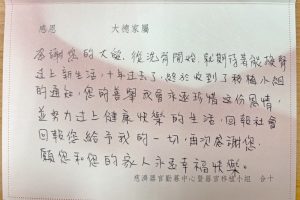 感恩 大德家屬
感謝您的大愛，從沒有開始，就期待著能換腎
過上新生活，十年過去了，終於收到了移植小組
的通知，您的善舉我會永遠珍惜這份恩情，
並努力過上健康快樂的生活，回報社會
回報您給予我的一切，再次感謝您，
願您和您的家人永遠幸福快樂。
慈濟器官勸募中心暨器官移植小組 合十